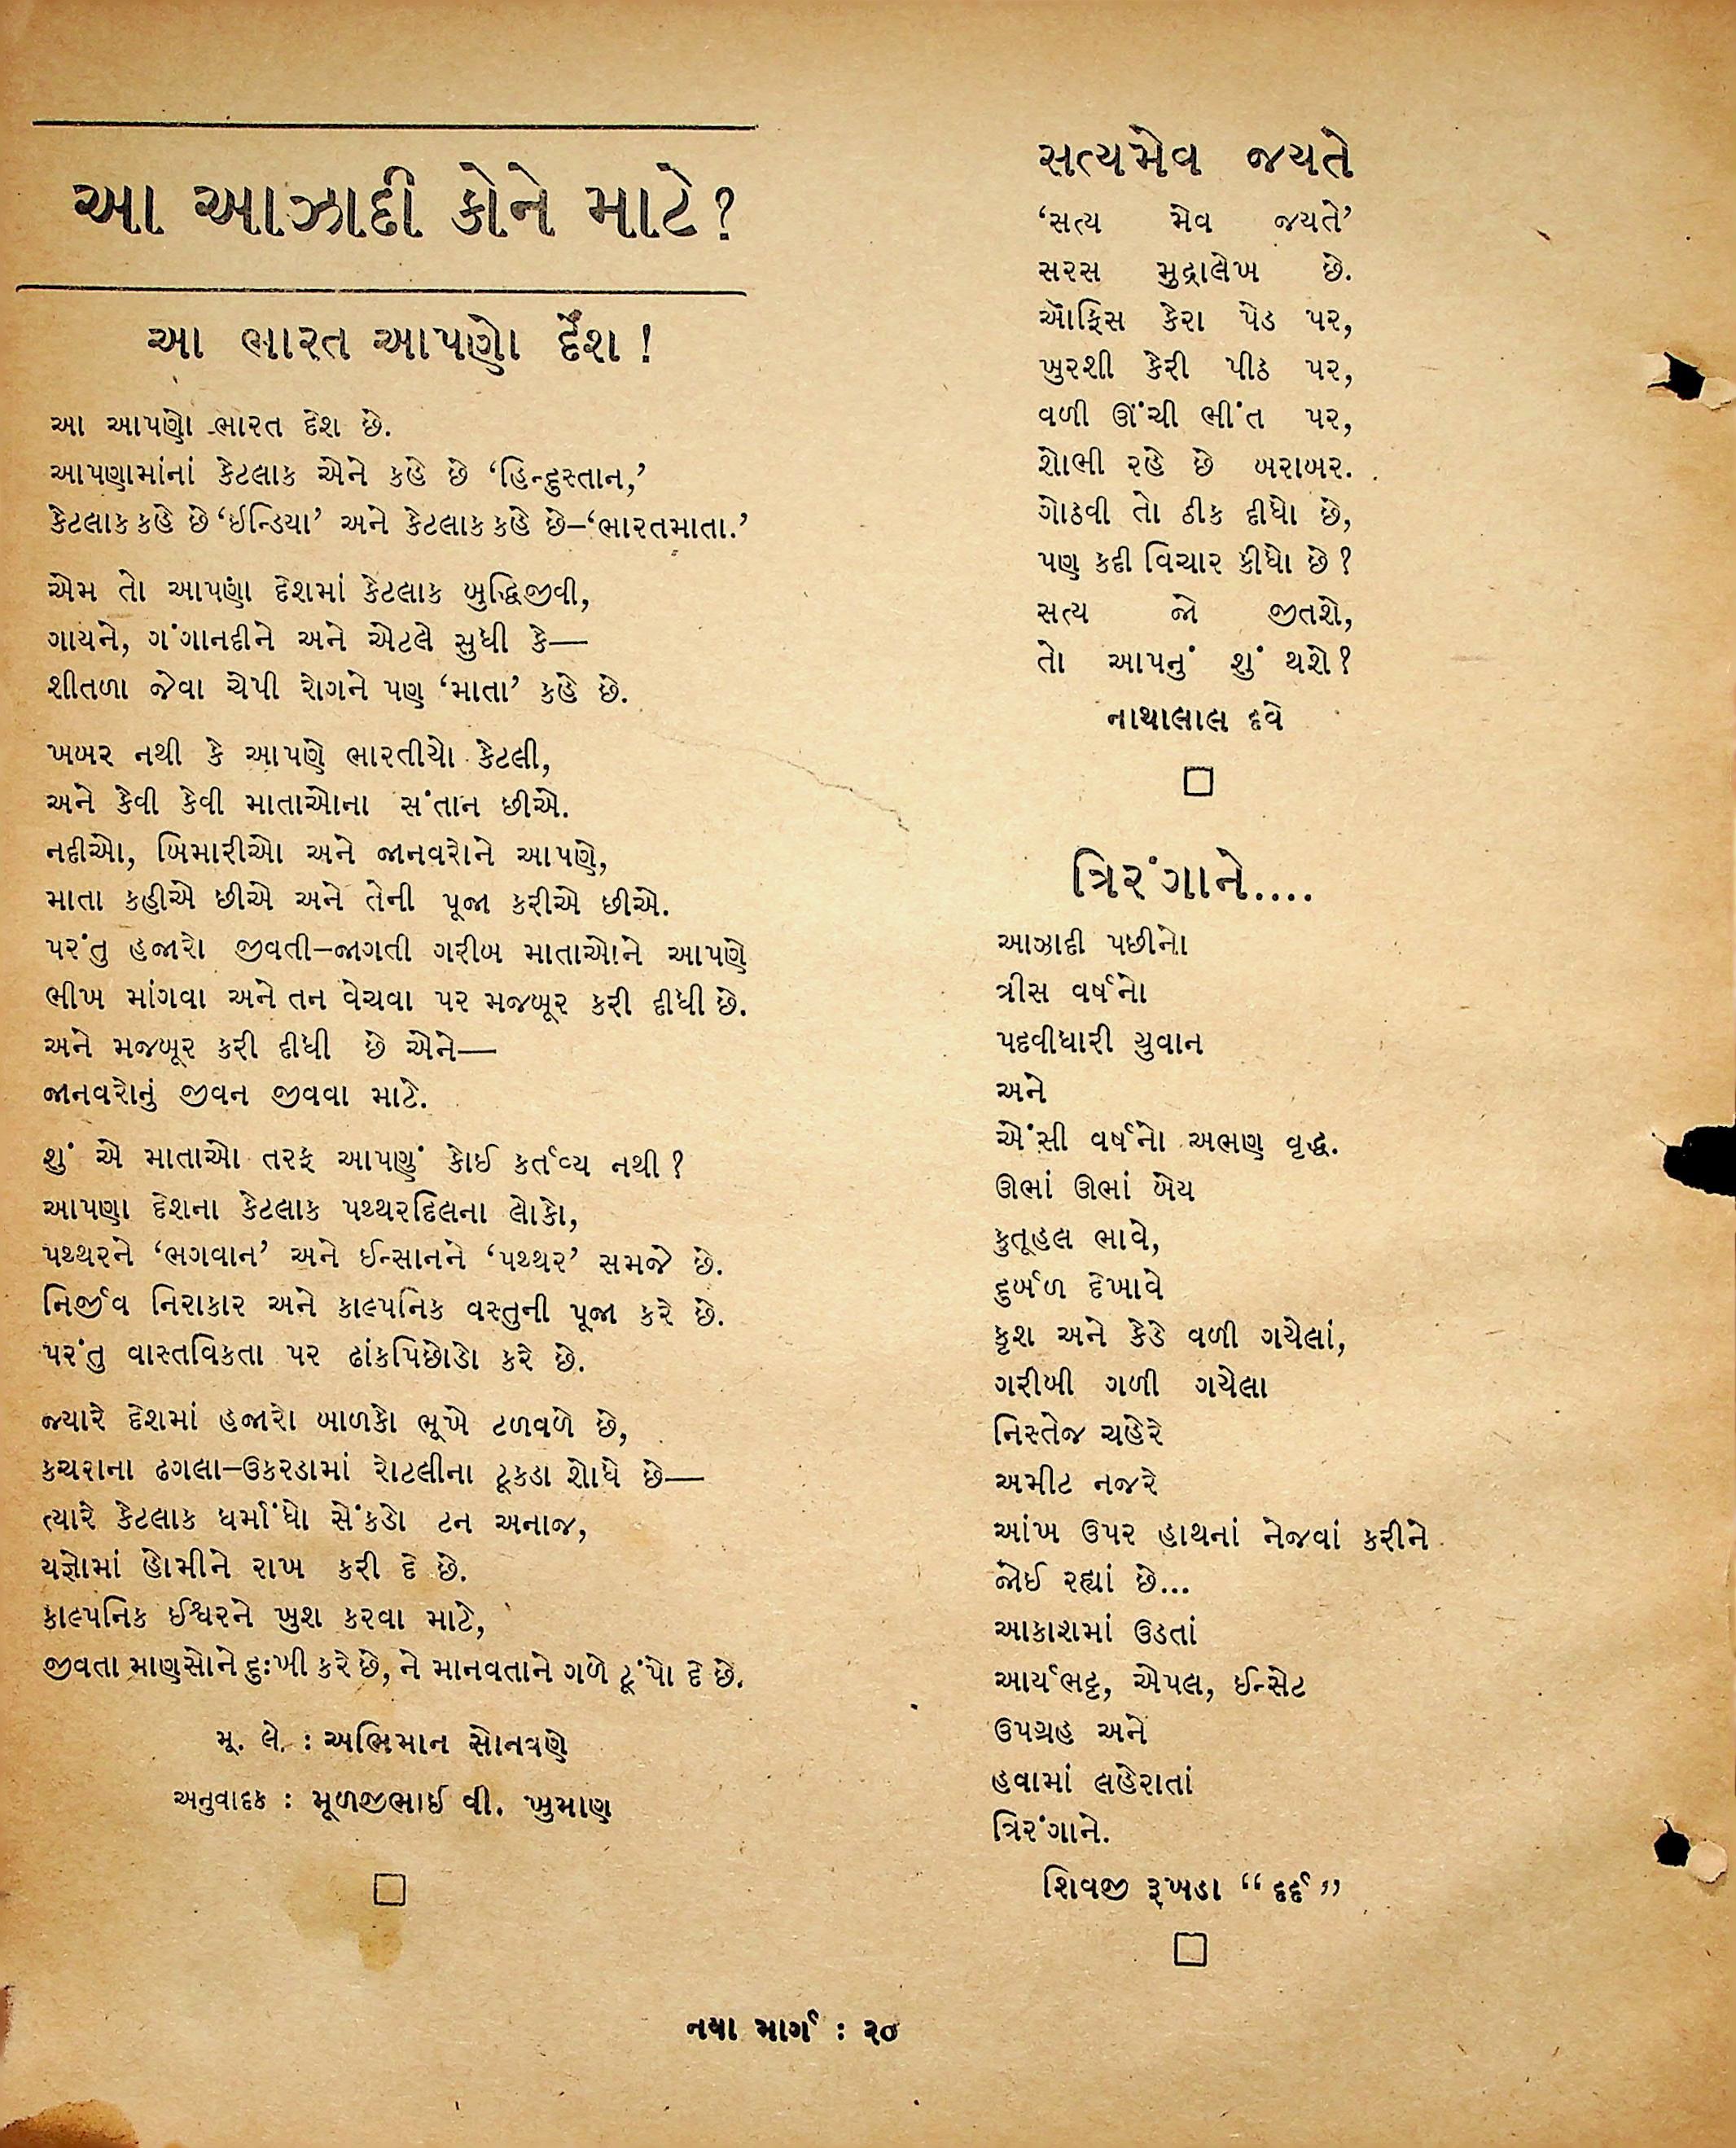 આ આઝાદી કોને માટે?
આ ભારત આપણો દેશ !
આ આપણો ભારત દેશ છે.
આપણામાંનાં કેટલાક એને કહે છે ‘હિન્દુસ્તાન,’
કેટલાક કહે છે ‘ઈન્ડિયા’ અને કેટલાક કહે છે–‘ભારતમાતા.’
એમ તો આપણાં દેશમાં કેટલાક બુદ્ધિજીવી,
ગાયને, ગંગાનદીને અને એટલે સુધી કે—
શીતળા જેવા ચેપી રોગને પણ ‘માતા’ કહે છે.
ખબર નથી કે આપણે ભારતીયો કેટલી,
અને કેવી કેવી માતાઓના સંતાન છીએ.
નદીઓ, બિમારીઓ અને જાનવરોને આપણે,
માતા કહીએ છીએ અને તેની પૂજા કરીએ છીએ.
પરંતુ હજારો જીવતી–જાગતી ગરીબ માતાઓને આપણે
ભીખ માંગવા અને તન વેચવા પર મજબૂર કરી દીધી છે.
અને મજબૂર કરી દીધી છે એને—
જાનવરોનું જીવન જીવવા માટે.
શું એ માતાઓ તરફ આપણું કોઈ કર્તવ્ય નથી ?
આપણા દેશના કેટલાક પથ્થરદિલના લોકો,
પથ્થરને ‘ભગવાન’ અને ઈન્સાનને ‘પથ્થર’ સમજે છે.
નિર્જીવ નિરાકાર અને કાલ્પનિક વસ્તુની પૂજા કરે છે.
પરંતુ વાસ્તવિકતા પર ઢાંકપિછોડો કરે છે.
જ્યારે દેશમાં હજારો બાળકો ભૂખે ટળવળે છે,
કચરાના ઢગલા–ઉકરડામાં રોટલીના ટૂકડા શોધે છે—
ત્યારે કેટલાક ધર્માંધો સેંકડો ટન અનાજ,
યજ્ઞોમાં હોમીને રાખ કરી દે છે.
કાલ્પનિક ઈશ્વરને ખુશ કરવા માટે,
જીવતા માણસોને દુઃખી કરે છે, ને માનવતાને ગળે ટૂંપો દે છે.
મૂ. લે. : અભિમાન સોનવણે
અનુવાદક : મૂળજીભાઈ વી. ખુમાણ
સત્યમેવ જયતે
‘સત્ય મેવ જયતે’
સરસ મુદ્રાલેખ છે.
ઑફિસ કેરા પેડ પર,
ખુરશી કેરી પીઠ પર,
વળી ઊંચી ભીંત પર,
શોભી રહે છે બરાબર.
ગોઠવી તો ઠીક દીધો છે,
પણ કદી વિચાર કીધો છે ?
સત્ય જો જીતશે,
તો આપનું શું થશે ?
નાથાલાલ દવે
ત્રિરંગાને....
આઝાદી પછીનો
ત્રીસ વર્ષનો
પદવીધારી યુવાન
અને
એંસી વર્ષનો અભણ વૃદ્ધ.
ઊભાં ઊભાં બેય
કુતૂહલ ભાવે,
દુર્બળ દેખાવે
કૃશ અને કેડે વળી ગયેલાં,
ગરીબી ગળી ગયેલા
નિસ્તેજ ચહેરે
અમીટ નજરે
આંખ ઉપર હાથનાં નેજવાં કરીને
જોઈ રહ્યાં છે...
આકાશમાં ઉડતાં
આર્યભટ્ટ, એપલ, ઈન્સેટ
ઉપગ્રહ અને
હવામાં લહેરાતાં
ત્રિરંગાને.
શિવજી રૂખડા “દર્દ”
નયા માર્ગ : ૨૦